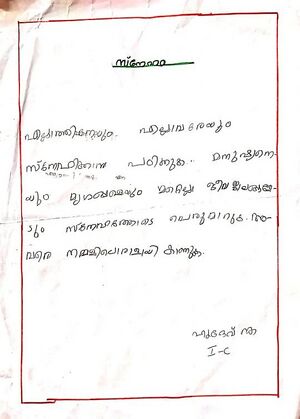 സ്നേഹം
എല്ലാത്തിനെയും. എല്ലാവരേയും
സ്നേഹിക്കാൻ പഠിക്കുക... മനുഷ്യനെ
യും മൃഗങ്ങളെയും മറ്റെല്ലാ ജീവജാലങ്ങളോ
ടും സ്നേഹത്തോടെ പെരുമാറുക. അ
വരെ നമ്മിലൊരാളായി കാണുക.
I-C